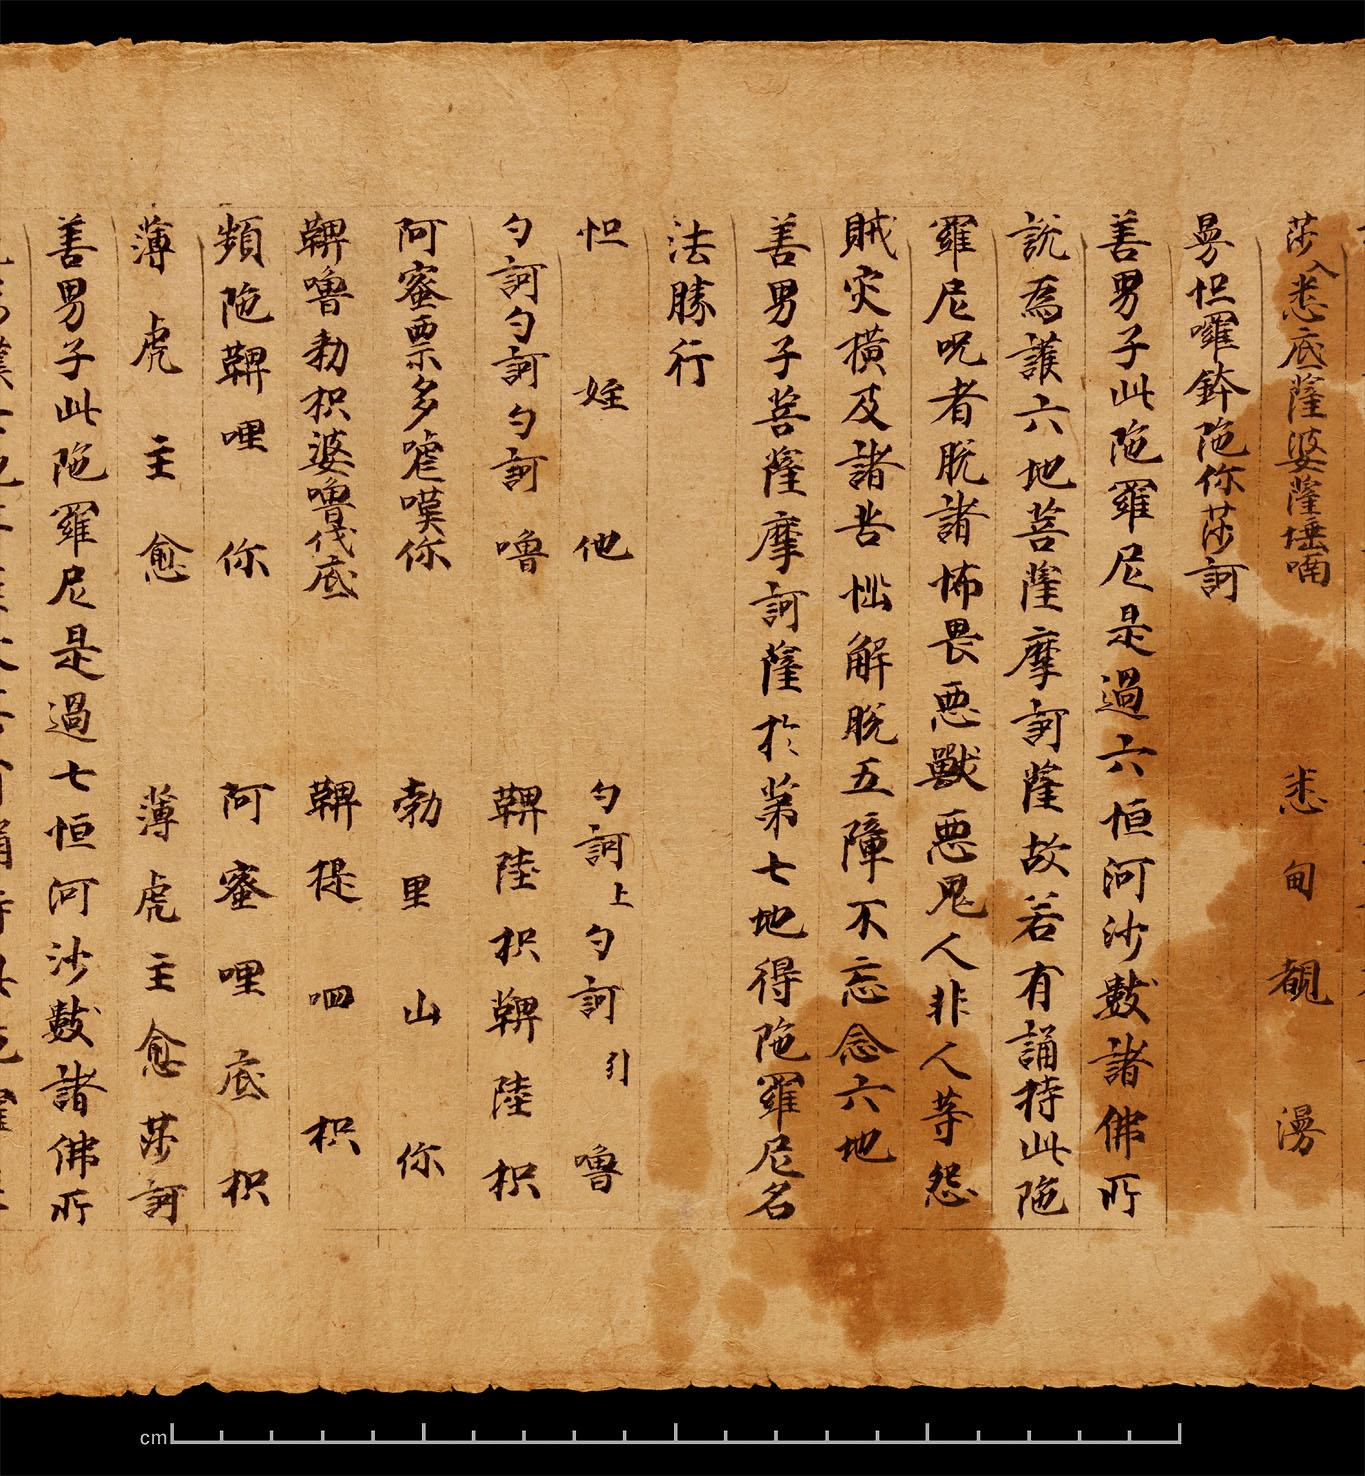 莎入悉底薩婆薩埵喃 悉甸覩漫
曼怛囉鉢陁你莎訶
善男子此陁羅尼是過六恒河沙數諸佛所
說爲護六地菩薩摩訶薩故若有誦持此陁
羅尼呪者脫諸怖畏惡獸惡鬼人非人等怨
賊灾橫及諸苦惱解脫五障不忘念六地
善男子菩薩摩訶薩於第七地得陁羅尼名
法勝行
怛姪他 勺訶上勺訶引嚕
勺訶勺訶勺訶嚕 鞞陸枳鞞陸枳
阿蜜栗多嘘嘆你 勃里山你
鞞嚕勑枳婆嚕伐底 鞞提呬枳
頻陁鞞哩你 阿蜜哩底枳
薄虎主愈 薄虎主愈莎訶
善男子此陁羅尼是過七恒河沙數諸佛所